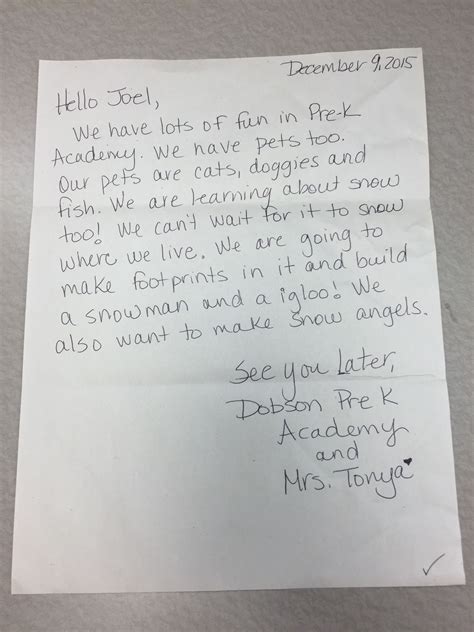 December 9, 2015
Hello Joel,
We have lots of fun in Pre-K
Academy. We have pets too.
Our pets are cats, doggies and
fish. We are learning about snow
too! We can't wait for it to snow
where we live. We are going to
make footprints in it and build
a snowman and a igloo! We
also want to make snow angels.
See you Later,
Dobson Pre K
Academy
and
Mrs. Tonya